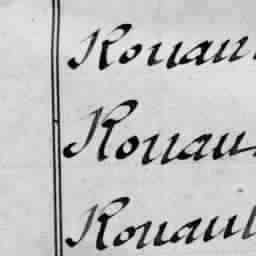 Rouau
Rouau
Rouaul